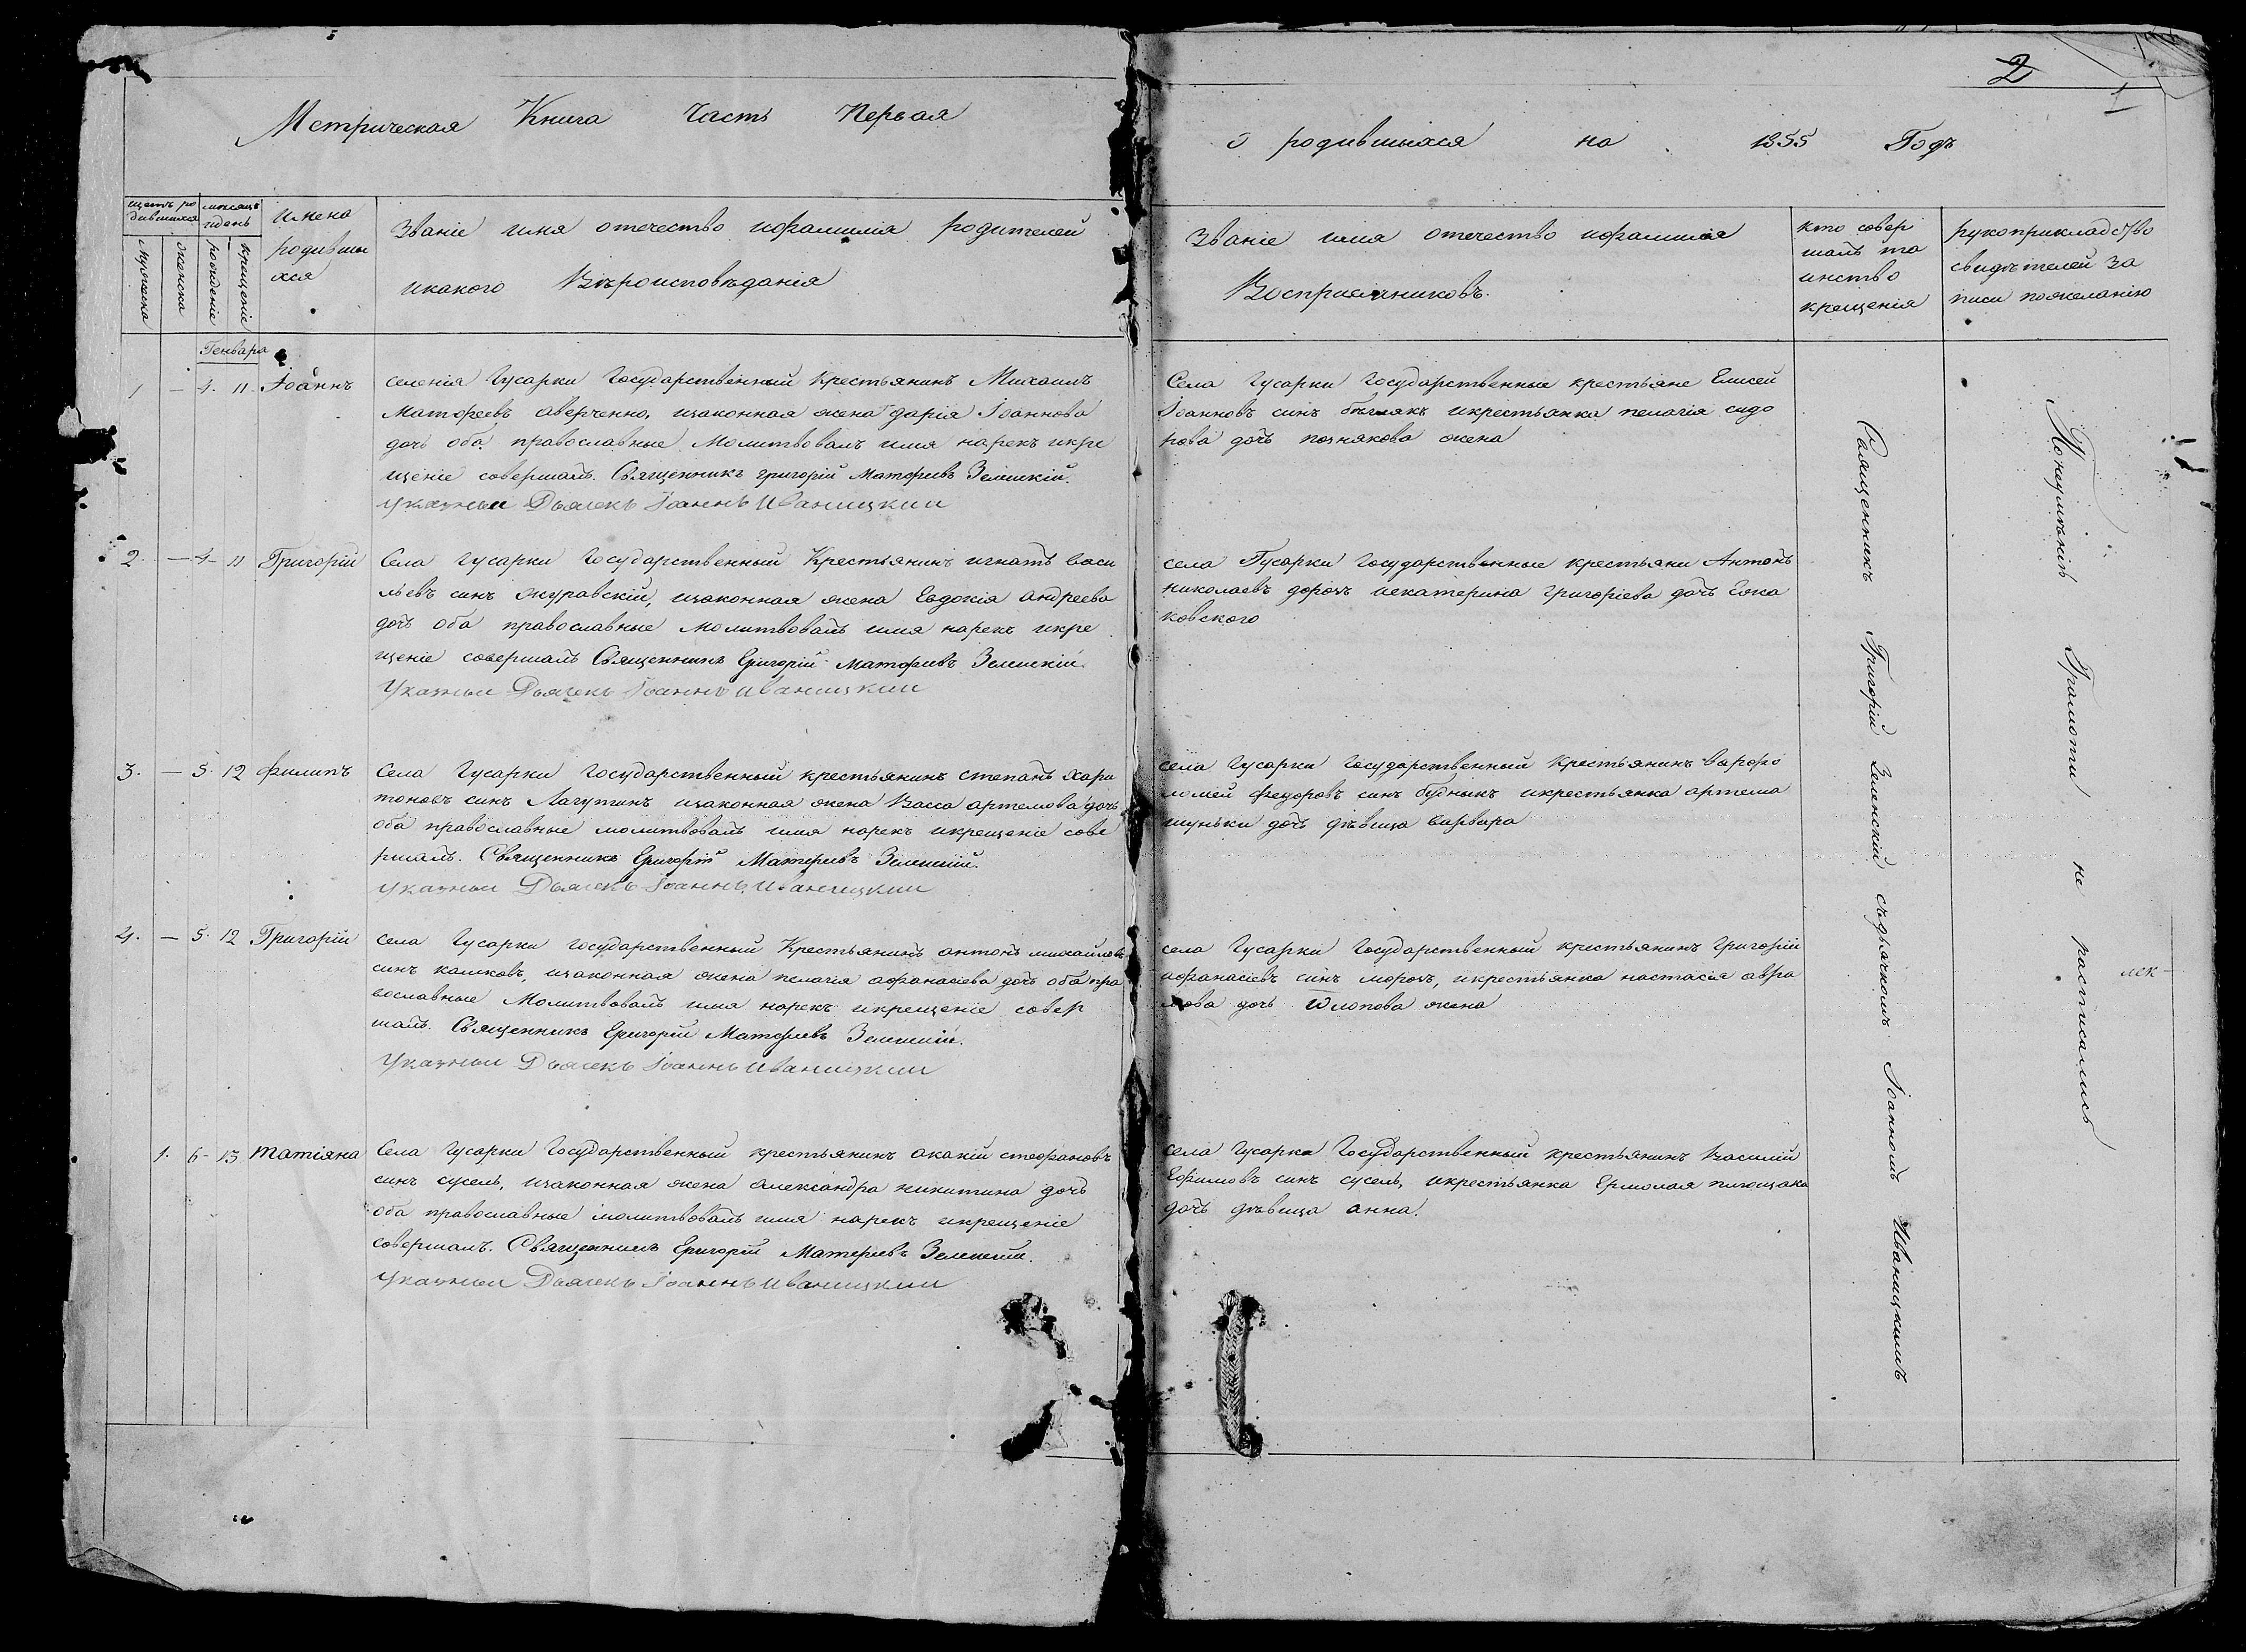 2
1
Метрическая Книга Часть Первая
о родившихся на 1855 Годъ
щетъ ро
дившихся
мужеска
женска
мѣсяцъ
идень
рожденіе
крещеніе
имена
родивши
хся
Званіе имя отечество ифамилія родителей
икакого Вѣроисповѣданія
Званіе имя отечество ифамилія
Воспріемниковъ.
кто совер
шалъ та
инство
крещенія
рукоприкладство
свидѣтелей за
писи пожеланію
Генвара
1 — 4. 11. Іоаннъ
селенія Гусарки Государственный Крестьянинъ Михаилъ
Матфеевъ аверченко, изаконная жена дарія Іоаннова
дочь оба православные Молитвовалъ имя нарекъ икре
щеніе совершалъ. Священникъ григорій Матфеевъ Зеленскій.
Указный Дьячекъ Іоаннъ Иваницкий
Села Гусарки Государственные крестьяне Елисей
Іоанновъ синъ икрестьянка пелагія сидо
рова дочь познякова жена
2. — 4 — 11 Григорій
Села гусарки Государственный Крестьянинъ игнатъ васи
льевъ синъ журавскій, изаконная жена Евдокія андреева
дочь оба православные молитвовалъ имя нарекъ икре
щеніе совершалъ Священникъ Григорій Матфеевъ Зеленскій.
Указный Дьячекъ Іоаннъ Иваницкий
села Гусарки Государственные крестьяни Антонъ
николаевъ дорошъ иекатерина григоріева дочь
ковского
3. — 5. 12 филипъ
Села Гусарки Государственный крестьянинъ степанъ хари
тоновъ синъ Лагутинъ изаконная жена Васса артемова дочь
оба православные молитвовалъ имя нарекъ икрещеніе сове
ршалъ. Священникъ Григорій Матфеевъ Зеленскій.
Указный Дьячекъ Іоаннъ Иваницкий
села Гусарки Государственный Крестьянинъ варфо
ломей федоровъ синъ будныкъ икрестьянка артема
шуньки дочь дѣвица варвара
4. — 5. 12 Григорій
Села Гусарки государственный Крестьянинъ антонъ михайловъ
синъ калковъ, изаконная жена пелагія афанасіева дочь оба пра
вославные Молитвовалъ имя нарекъ икрещеніе совер
шалъ. Священникъ Григорій Матфеевъ Зеленскій.
Указный Дьячекъ Іоаннъ Иваницкий
села Гусарки Государственный крестьянинъ григорій
афанасіевъ синъ морозъ, икрестьянка настасія авра
мова дочь жена
1. 6 — 13 татіяна
Села Гусарки Государственный крестьянинъ акакій стефановъ
синъ сусель, изаконная жена александра никитина дочь
оба православные молитвовалъ имя нарекъ икрещеніе
совершалъ. Священникъ Григорій Матфеевъ Зеленскій.
Указный Дьячекъ Іоаннъ Иваницкий
Села Гусарки Государственный крестьянинъ Василій
Ефимовъ синъ сусель, икрестьянка Ермолая
дочь дѣвица анна.
Священникъ Григорій Зеленскій съдьячкомъ Іоанномъ Иваницкимъ
Понеумѣнію Грамоти не расписались